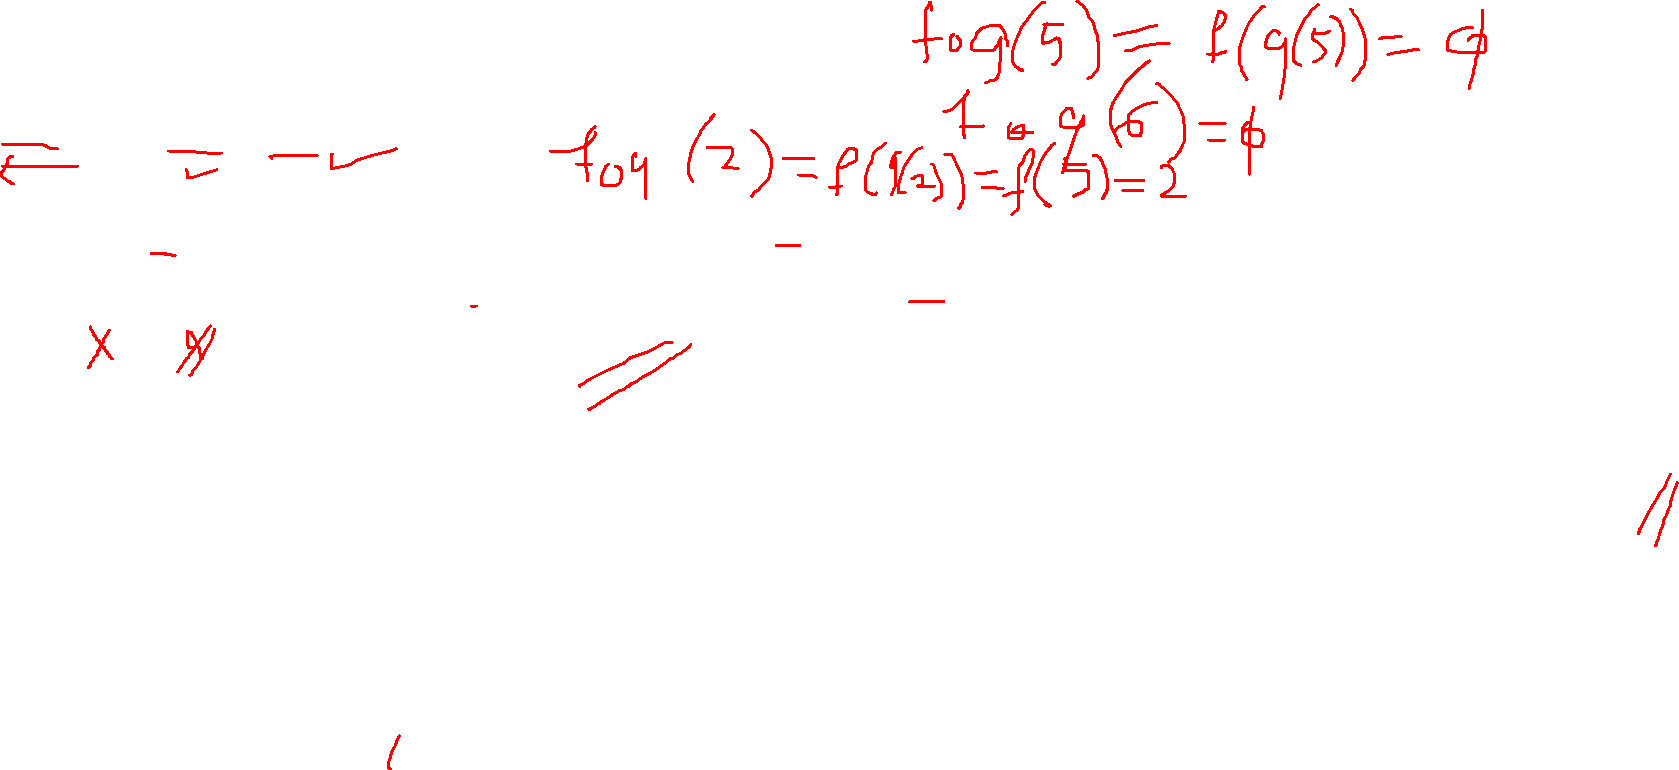 fog(5) = f(g(5)) = φ
fog(6) = φ
fog(2) = f(g(2)) = f(5) = 2
x